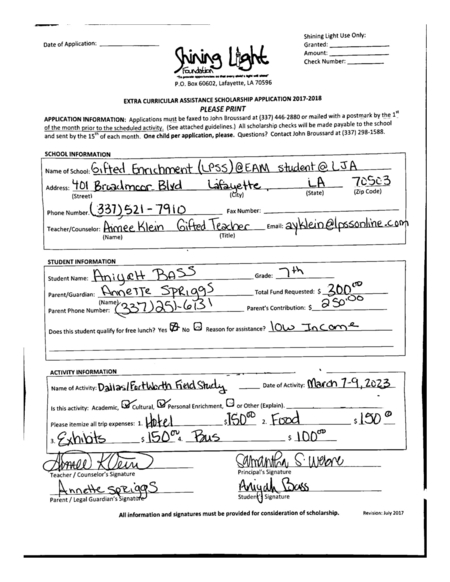 Date of Application:
Shining Light Use Only:
Granted:
Amount:
Check Number:
Shining Light
Foundation
"To provide opportunities so that every child's light will shine"
P.O. Box 60602, Lafayette, LA 70596
EXTRA CURRICULAR ASSISTANCE SCHOLARSHIP APPLICATION 2017-2018
PLEASE PRINT
APPLICATION INFORMATION: Applications must be faxed to John Broussard at (337) 446-2880 or mailed with a postmark by the 1st
of the month prior to the scheduled activity. (See attached guidelines.) All scholarship checks will be made payable to the school
and sent by the 15th of each month. One child per application, please. Questions? Contact John Broussard at (337) 298-1588.
SCHOOL INFORMATION
Name of School: Gifted Enrichment (LPSS)@EAM student @ LJA
Address: 401 Broadmoor Blvd Lafayette, LA 70503
(Street) (City) (State) (Zip Code)
Phone Number: (337)521-7910 Fax Number:
Teacher/Counselor: Aimee Klein Gifted Teacher Email: ayklein@lpssonline.com
(Name) (Title)
STUDENT INFORMATION
Student Name: Aniyah BASS Grade: 7th
Parent/Guardian: Annette Spriggs Total Fund Requested: $ 300.00
(Name)
Parent Phone Number: (337)251-6731 Parent's Contribution: $ 250.00
Does this student qualify for free lunch? Yes No Reason for assistance? low Income
ACTIVITY INFORMATION
Name of Activity: Dallas/Fort Worth Field Study Date of Activity: March 7-9, 2023
Is this activity: Academic, Cultural, Personal Enrichment, or Other (Explain).
Please itemize all trip expenses: 1. Hotel $150.00 2. Food $150.0
3. Exhibits $150.00 4. Bus $100.00
Aimee Klein Samantha S. Webre
Teacher / Counselor's Signature Principal's Signature
Annette Spriggs Aniyah Bass
Parent / Legal Guardian's Signature Student Signature
All information and signatures must be provided for consideration of scholarship. Revision: July 2017